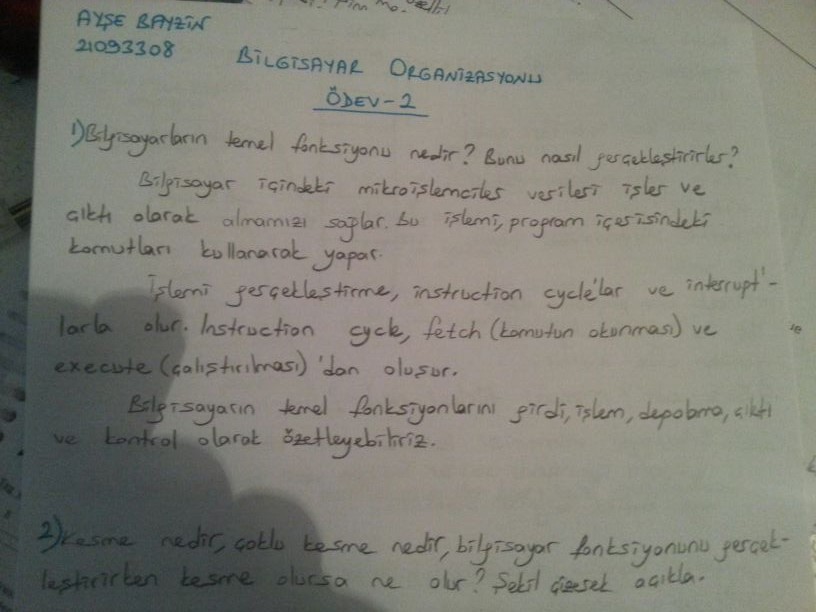 AYŞE BAYZİN
21093308
BİLGİSAYAR ORGANİZASYONU
ÖDEV-2
1) Bilgisayarların temel fonksiyonu nedir? Bunu nasıl gerçekleştirirler?
Bilgisayar içindeki mikroişlemciler verileri işler ve
çıktı olarak almamızı sağlar. bu işlemi, program içerisindeki
komutları kullanarak yapar.
İşlemi gerçekleştirme, instruction cycle'lar ve interrupt'-
larla olur. Instruction cycle, fetch (komutun okunması) ve
execute (çalıştırılması)'dan oluşur.
Bilgisayarın temel fonksiyonlarını girdi, işlem, depolama, çıktı
ve kontrol olarak özetleyebiliriz.
2) Kesme nedir, çoklu kesme nedir, bilgisayar fonksiyonunu gerçek-
leştirirken kesme olursa ne olur? Şekil çizerek açıkla.